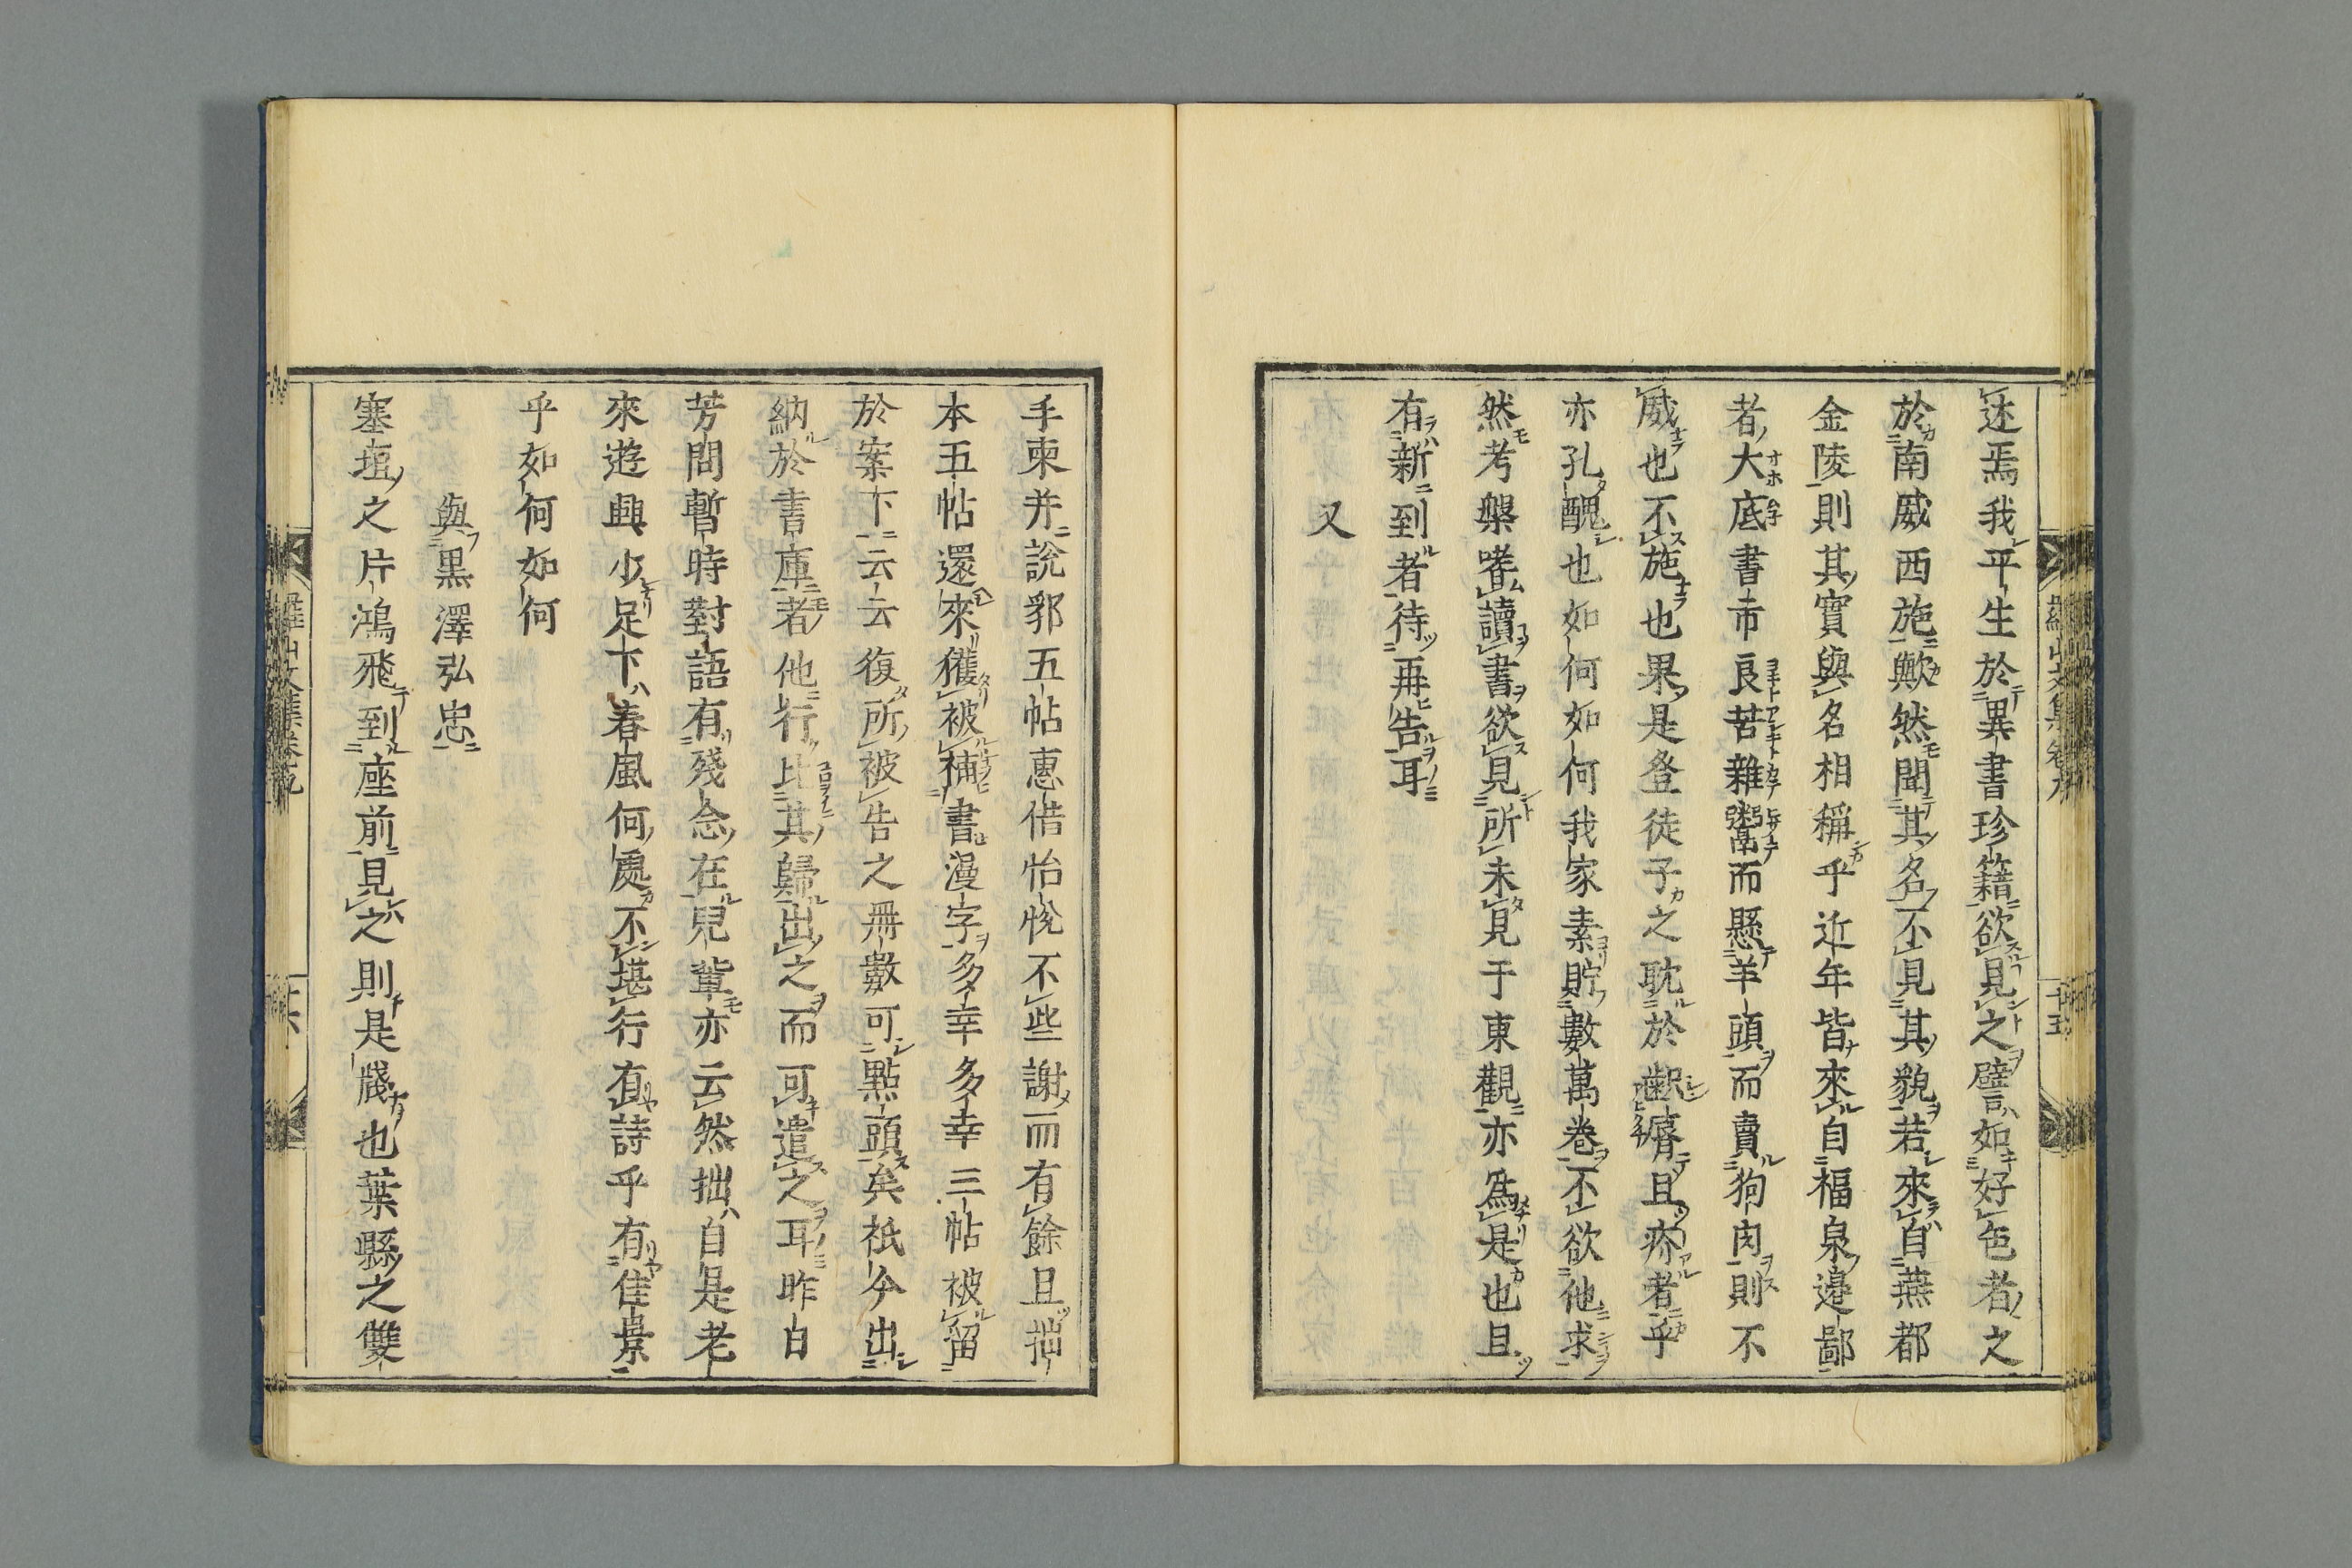 述焉我平生於異書珍籍欲見之譬如好色者之
於南威西施歟然聞其名不見其貌若來自燕都
金陵則其實與名相稱乎近年皆來自福泉邉鄙
者大底書市良苦雜鬻而懸羊頭而賣狗肉則不
威也不施也果是登徒子之耽於齞脣且疥者乎
亦孔醜也如何如何我家素貯數萬卷不欲他求
然考槃嗜讀書欲見所未見于東觀亦爲是也且
有新到者待再告耳
又
手柬并說郛五帖惠借怡悅不些謝而有餘且拙
本五帖還來獲被補書漫字多幸多幸三帖被留
於案下云云復所被告之冊數可點頭矣祇今出
納於書庫者他行比其歸出之而可遣之耳昨日
芳問暫時對語有殘念在兒輩亦云然拙自是老
來遊興少足下春風何處不堪行有詩乎有佳景
乎如何如何
與黒澤弘忠
塞垣之片鴻飛到座前見之則是牋也葉縣之雙
羅山文集卷九
十五